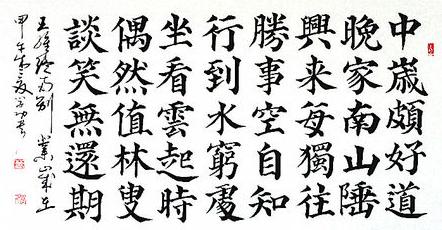 中歲頗好道
晚家南山陲
興来每獨往
勝事空自知
行到水窮處
坐看雲起時
偶然值林叟
談笑無還期
王維終南别業 歲在
甲午